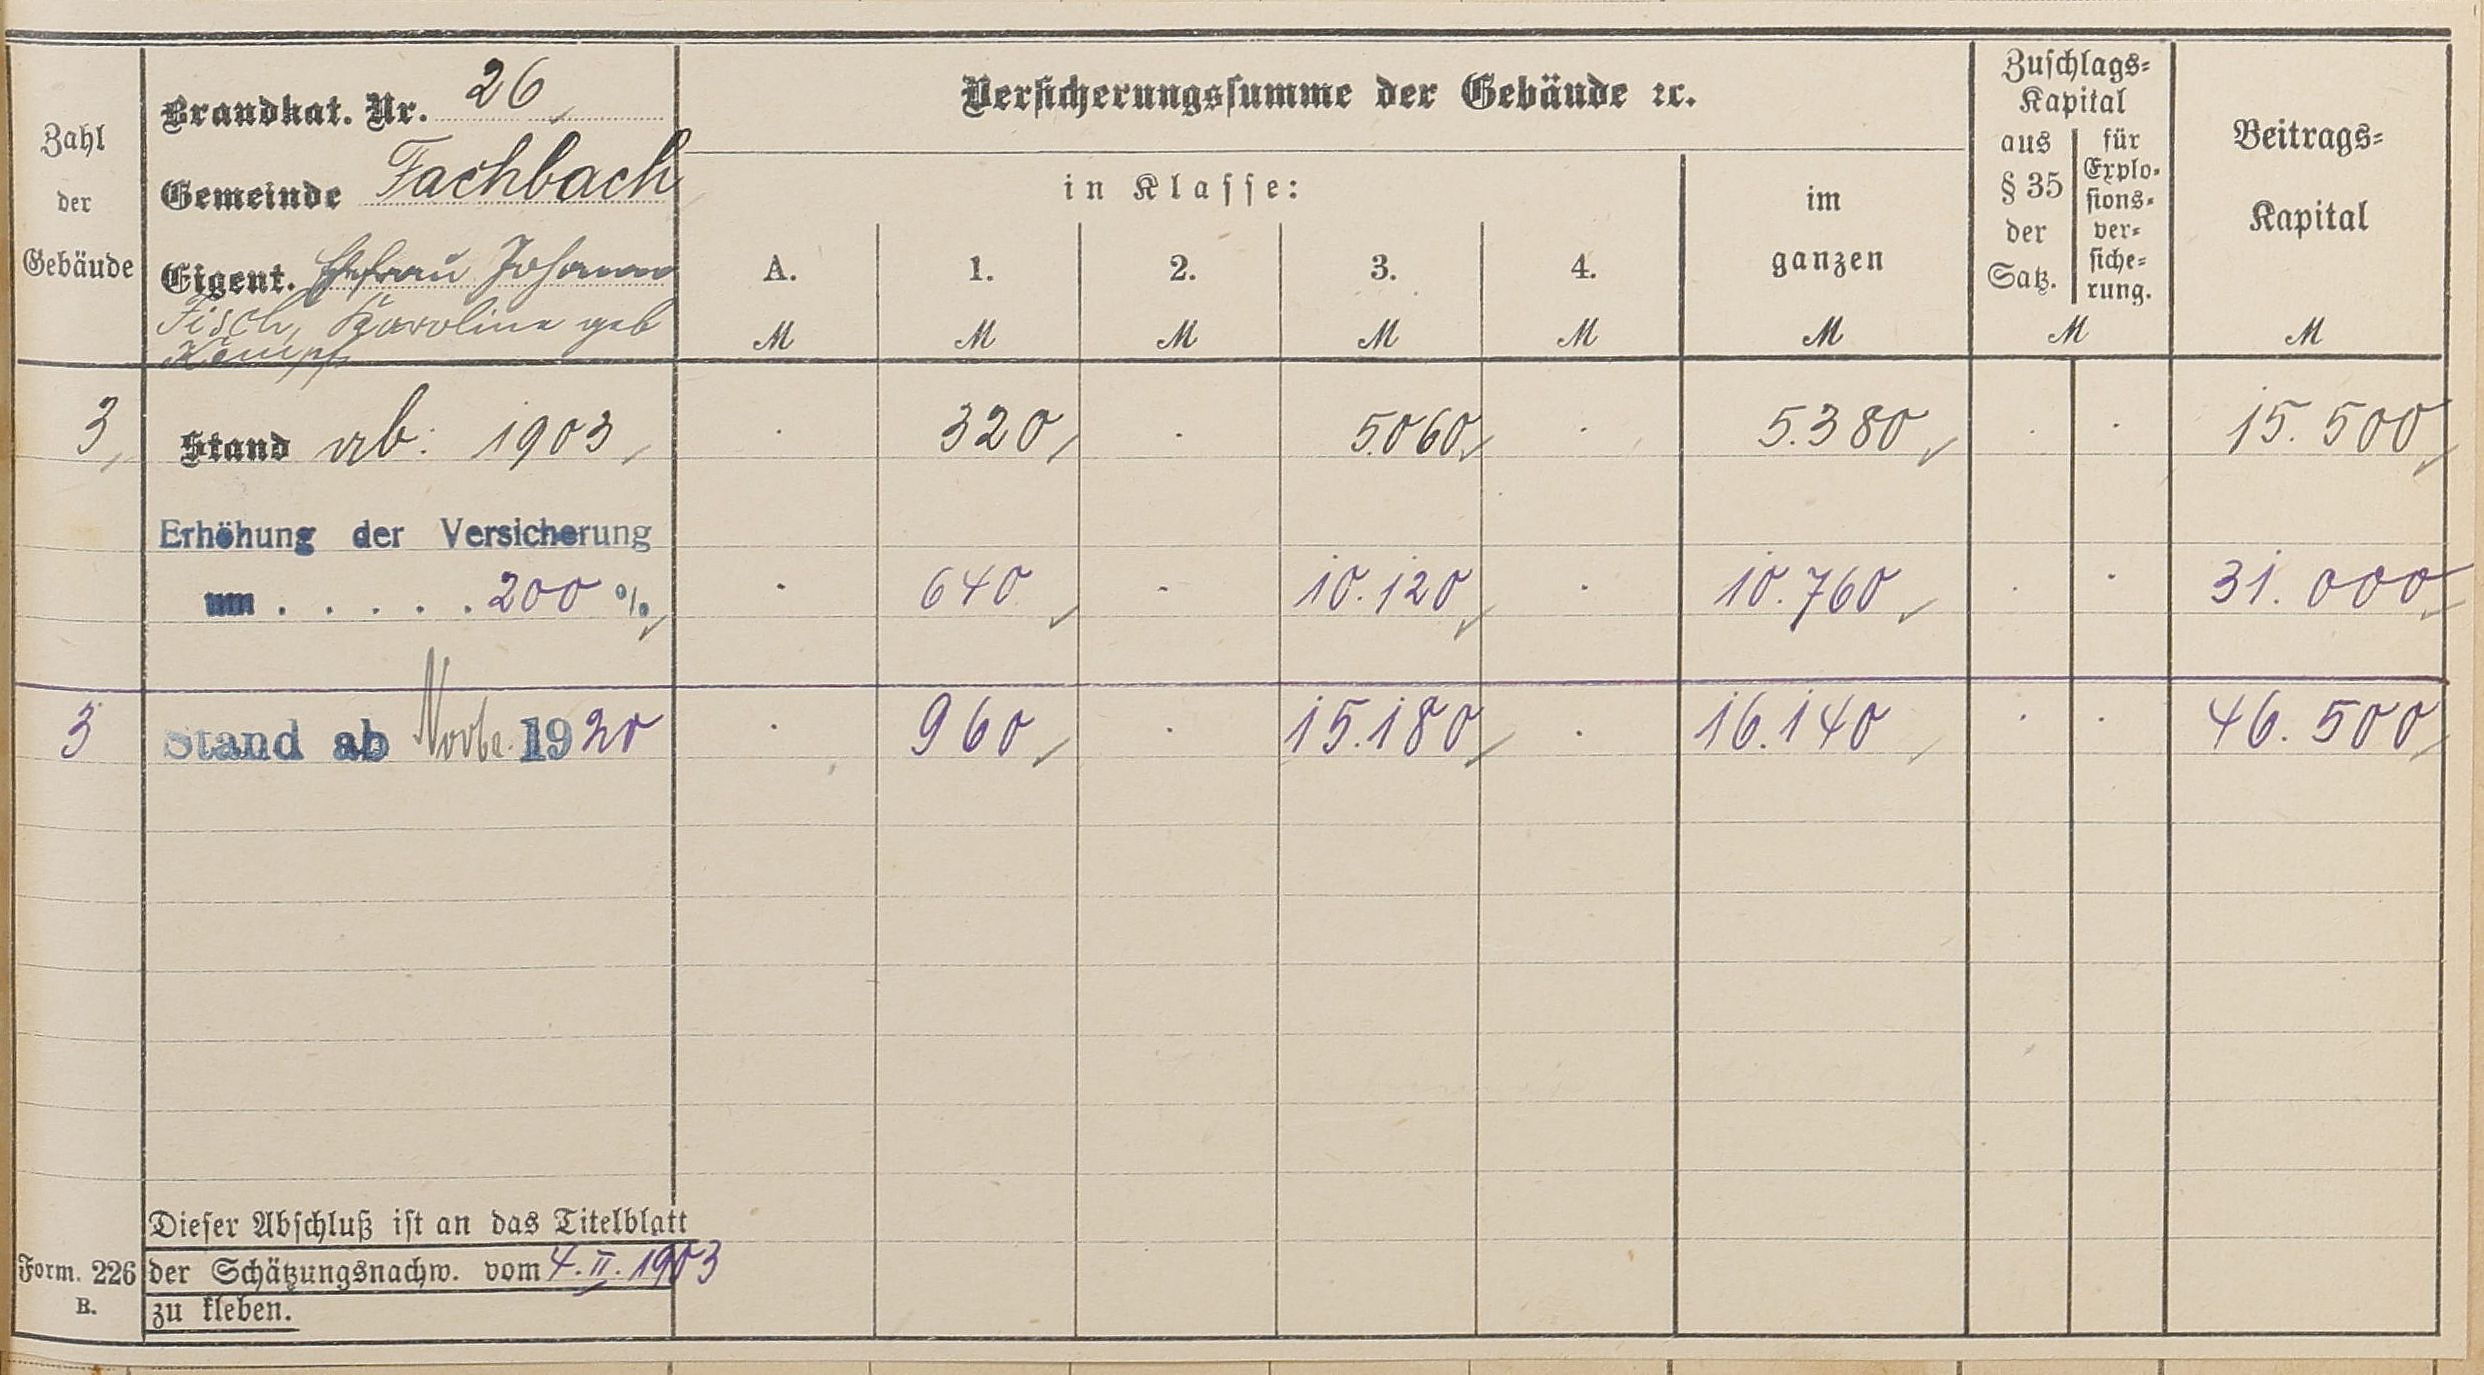 Zahl
der
Gebäude
Brandkat. Nr. 26
Gemeinde Fachbach
Eigent. Ehefrau Johann
Fisch, Karoline geb
Kampf
Versicherungssumme der Gebäude ꝛc.
in Klasse:
A. 1. 2. 3. 4.
M M M M M
im
ganzen
M
Zuschlags-
Kapital
aus
§ 35
der
Satz.
für
Explo-
sions-
ver-
siche-
rung.
M
Beitrags-
Kapital
M
3, Stand ab: 1903, · 320, · 5.060, · 5.380, · · 15.500,
Erhöhung der Versicherung
um . . . . . 200 %, · 640, - 10.120, · 10.760, · · 31.000,
3 Stand ab Novbr. 1920 · 960, · 15.180, · 16.140, · · 46.500,
Dieser Abschluß ist an das Titelblatt
der Schätzungsnachw. vom 4. II. 1903
zu kleben.
Form. 226
B.